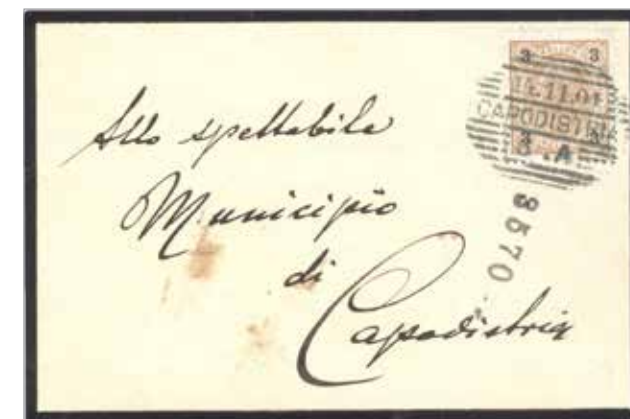 3 3
14.11.01
CAPODISTRIA
3
.A
Allo spettabile
Municipio
di
Capodistria